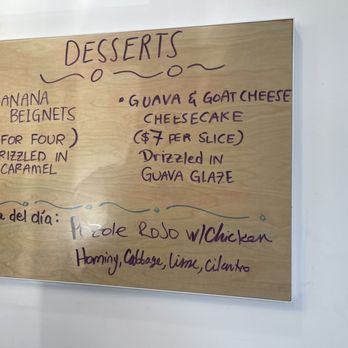 DESSERTS
ANANA
BEIGNETS
FOR FOUR)
RIZZLED IN
CARAMEL
• GUAVA & GOAT CHEESE
CHEESECAKE
($7 PER SLICE)
Drizzled IN
GUAVA GLAZE
a del día: Pozole Rojo w/Chicken
Hominy, Cabbage, Lime, Cilantro